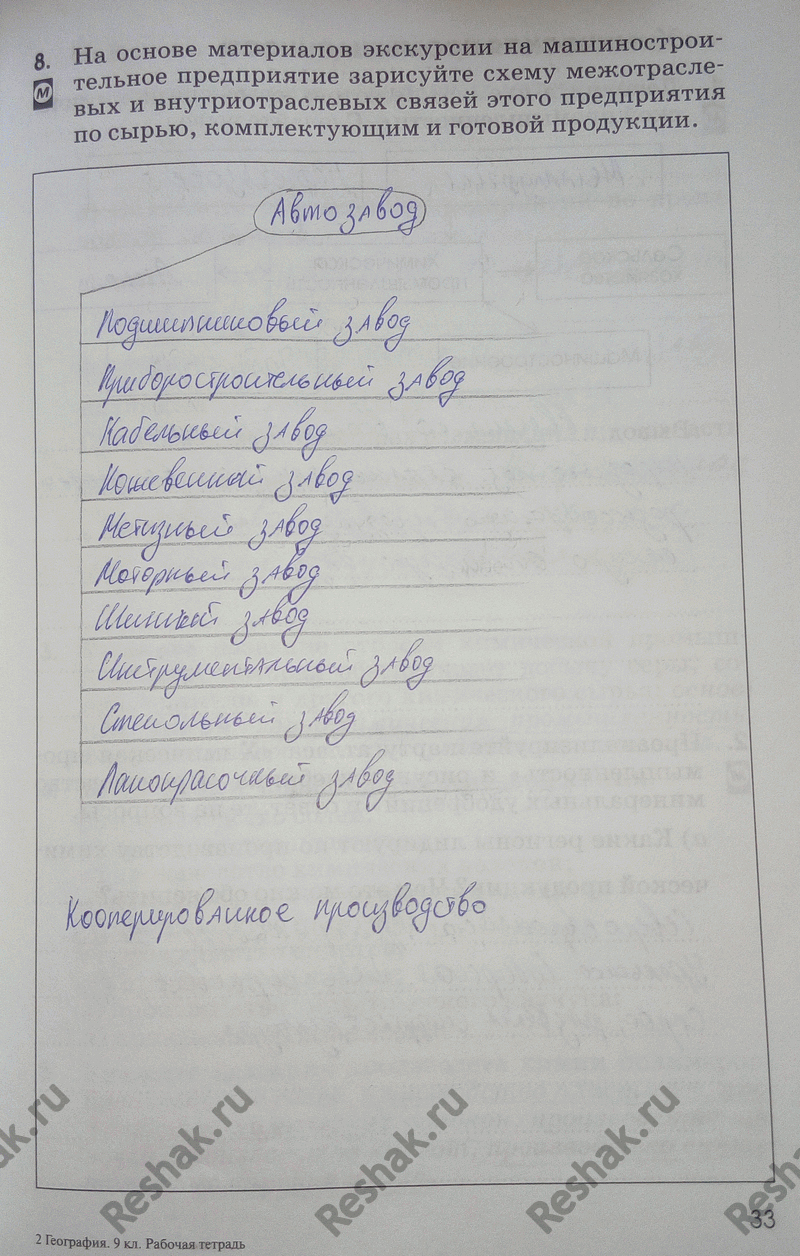 8. На основе материалов экскурсии на машинострои-
тельное предприятие зарисуйте схему межотрасле-
вых и внутриотраслевых связей этого предприятия
по сырью, комплектующим и готовой продукции.
М
Автозавод
Подшипниковый завод
Приборостроительный завод
Кабельный завод
Кожевенный завод
Метизный завод
Моторный завод
Шинный завод
Инструментальный завод
Стекольный завод
Лакокрасочный завод
Кооперированное производство
Reshak.ru
Reshak.ru
Reshak.ru
33
2 География. 9 кл. Рабочая тетрадь